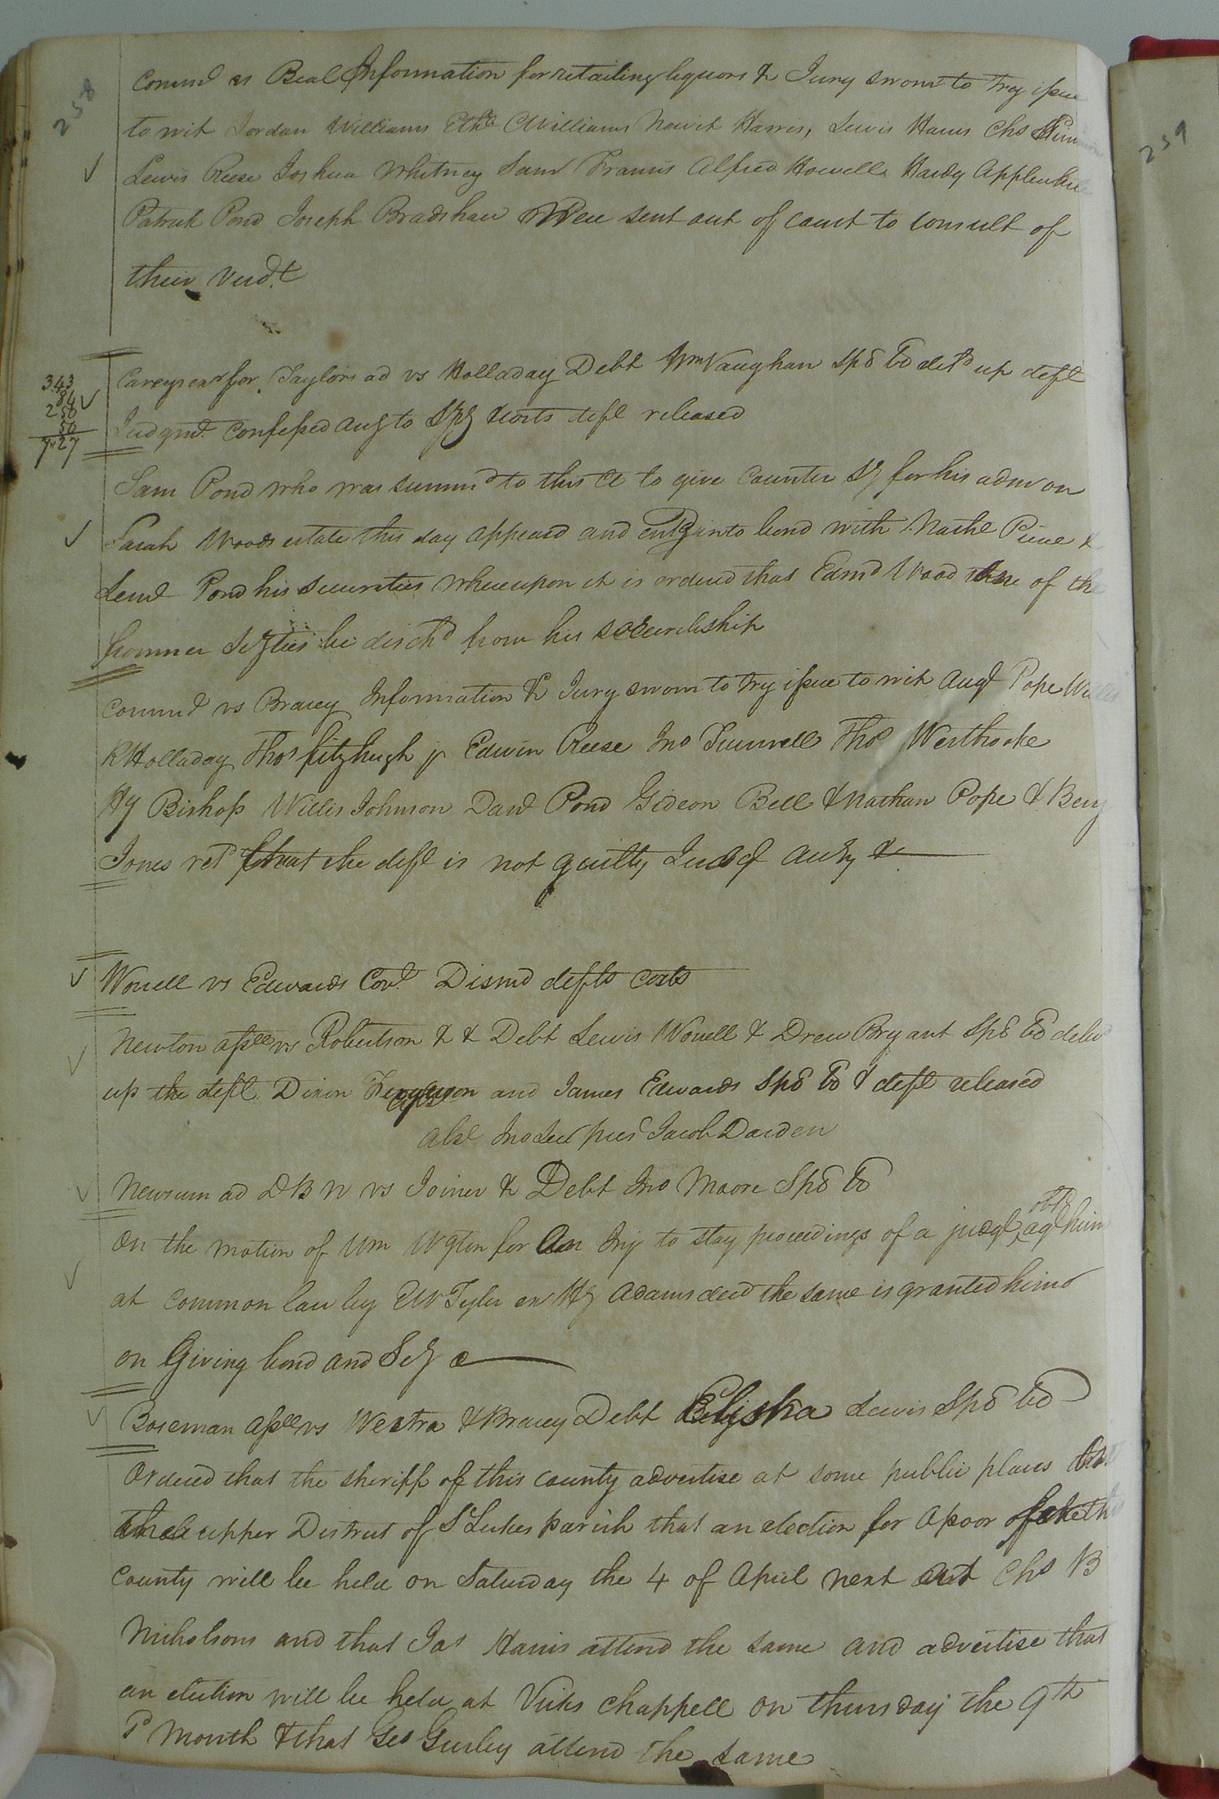 258
259
Commd vs Beal Information for retailing liquors & Jury sworn to try issue
to wit Jordan Williams Ethd Williams Newit Harris, Lewis Harris Chs
Lewis Reese Joshua Whitney Saml Francis Alfred Howell Hardy Applewhite
Patrick Pond Joseph Bradshaw Were sent out of court to consult of
their Verdt
Careys exor for Taylors ad vs Holladay Debt Wm Vaughan Spe bd deld up deft
343
84
250
50
7.27
Judgmt confessed Aug to Spy & costs deft released
Sam Pond who was summd to this Ct to give Counter Sy for his adm on
Sarah Woods estate this day appeard and entg into bond with Nathl Price &
Leml Pond his Securities whereupon it is ordered that Edmd Wood one of the
former Scties be disch'd from his secureliship
Commd vs Bracey Information & Jury sworn to try issue to wit Augt Pope Willis
R Holladay Thos Fitzhugh jr Edwin Reese Jno Tunnell Thos Westbroke
Hy Bishop Willis Johnson Danl Pond Gideon Bell & Nathan Pope & Benj
Jones retd that the deft is not guilty Judgt &
Worrell vs Edwards Covt Dismd defts costs
Newton assee vs Robertson & & Debt Lewis Worrell & Drew Bryant Spe bd delivd
up the deft Dixon Ferguson and James Edwards Spe bd & deft released
also Jno presd Jacob Darden
Newsum ad D B N vs Joiner & Debt Jno Moore Spe bd
On the motion of Wm Wgton for An Inj to stay proceedings of a judgt obtd agt him
at common law by W Tyler exr Hy Adams decd the same is granted him
on Giving bond and Scy &
Boseman assee vs Westra & Bracey Debt Elisha Lewis Spe bd
Ordered that the sheriff of this county advertise at some public places
the upper District of St Lukes parish that an election for Apoor of the
County will be held on Saturday the 4 of April next at Chs B
Nicholsons and that Jas Harris attend the same and advertise that
an election will be held at Vicks chappell on thursday the 9th
Sd Month & that Geo Gurley attend the same